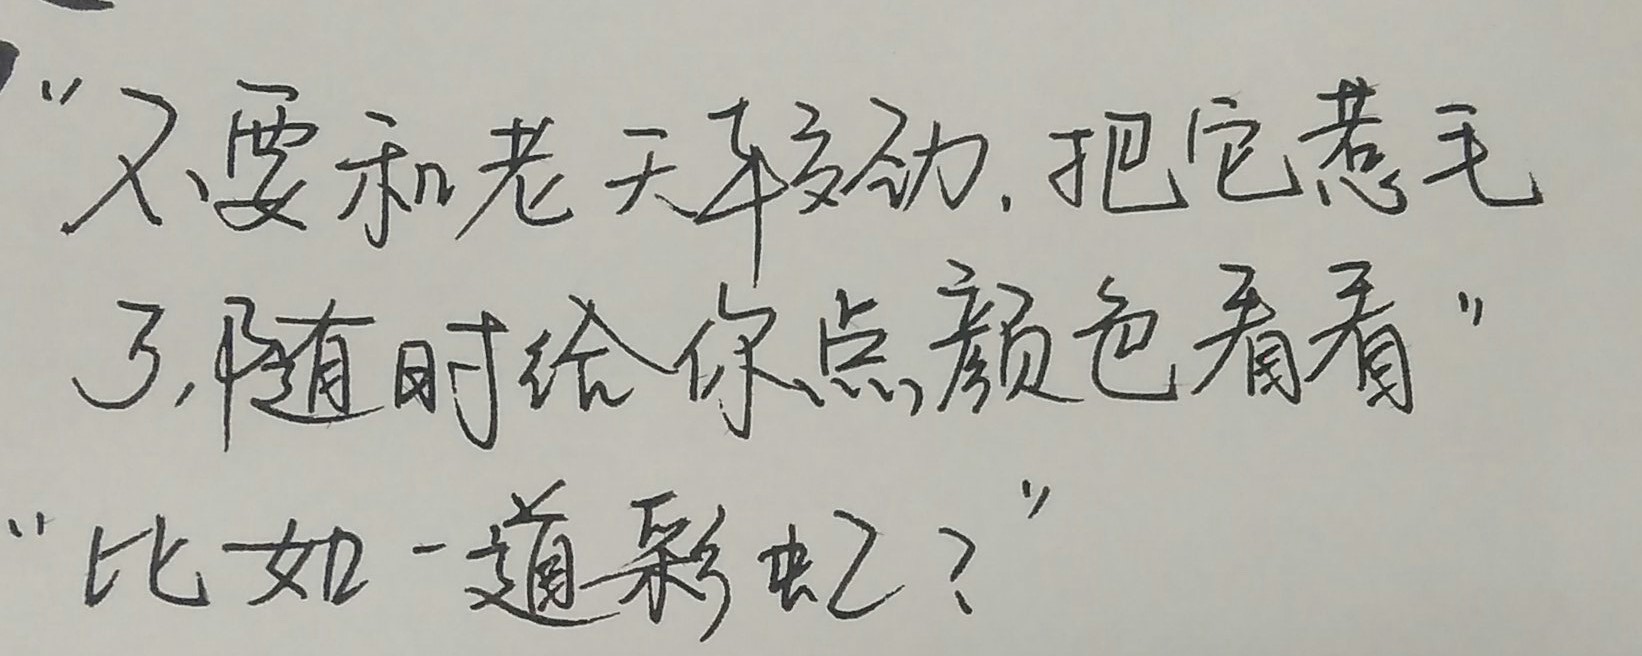 “不要和老天较劲.把它惹毛
了,随时给你点颜色看看”
“比如一道彩虹?”